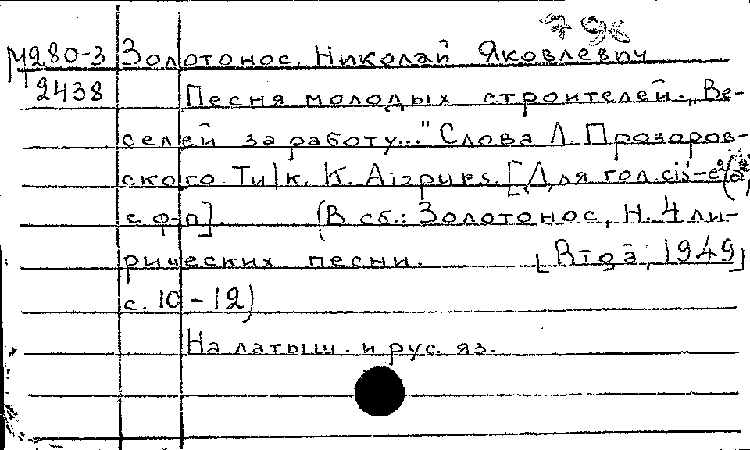 796
М280-3 Золотонос, Николай Яковлевич
2438 Песня молодых строителей. „Ве-
селей за работу..." Слова Л. Прозоров-
ского. Tulk. K. Aizpurs. [Для гол. cis-e²(a²)
с ф-п]. (В сб.: Золотонос, Н. 4 ли-
рических песни. [Rīgā, 1949]
с. 10-12)
На латыш. и рус. яз.